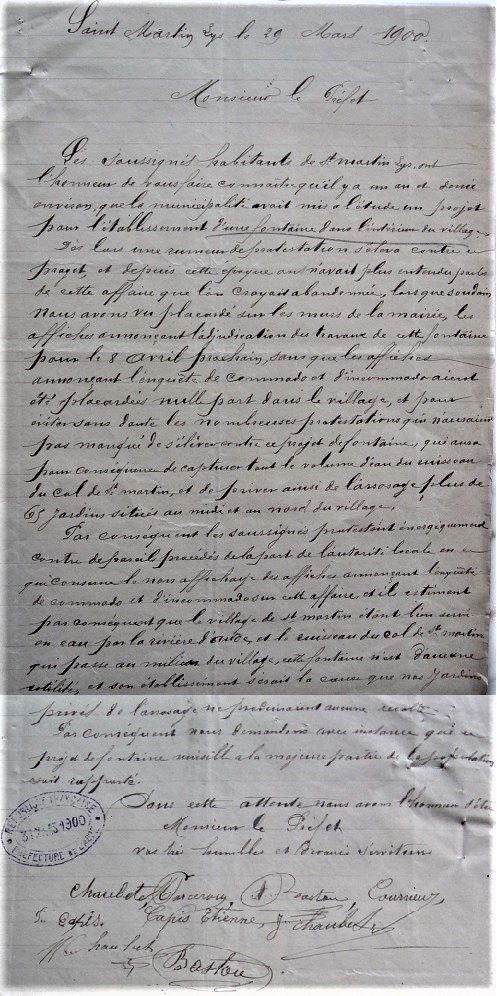 Saint Martin Lys le 29 Mars 1900
Monsieur le Préfet
Les soussignés habitants de St martin Lys, ont
l'honneur de vous faire connaître qu'il y a un an et demie
environ, que la municipalité avait mis a l'étude un projet
pour l'établissement d'une fontaine dans l'intérieur du village.
Dès lors une rumeur de protestation s'éleva contre ce
projet, et depuis cette époque on n'avait plus entendu parler
de cette affaire que l'on croyait abandonnée, lorsque soudain
nous avons vu placardé sur les murs de la mairie, les
affiches annonçant l'adjudication des travaux de cette fontaine
pour le 8 avril prochain, sans que les affiches
annonçant l'enquête de commodo et d'incommodo aient
été placardées nulle part dans le village, et pour
éviter sans doute les nombreuses protestations qui n'auraient
pas manqué de s'élever contre ce projet de fontaine, qui aura
pour conséquence de capturer tout le volume d'eau du ruisseau
du col de St martin, et de priver ainsi de l'arrosage plus de
65 Jardins situés au midi et au nord du village.
Par conséquent les soussignés protestent énergiquement
contre de pareils procédés de la part de l'autorité locale en ce
qui concerne le non affichage des affiches annonçant l'enquête
de commodo et d'incommodo sur cette affaire et ils estiment
par conséquent que le village de St martin étant bien servi
en eau par la rivière d'aude, et le ruisseau du col de St martin
qui passe au milieu du village, cette fontaine n'est d'aucune
utilité, et son établissement serait la cause que nos Jardins
privés de l'arrosage ne produiraient aucune récolte.
Par conséquent nous demandons avec instance que ce
projet de fontaine nuisible a la majeure partie de la population
soit rapporté.
Dans cette attente nous avons l'honneur d'être
Monsieur le Préfet
vos très humbles et dévoués serviteurs
REPUBLIQUE FRANÇAISE
31 MARS 1900
PREFECTURE DE L'AUDE
Chaubet Bastou, Courrieu,
Capis, Capis Etienne, Chaubet
Chaubet
Bastou